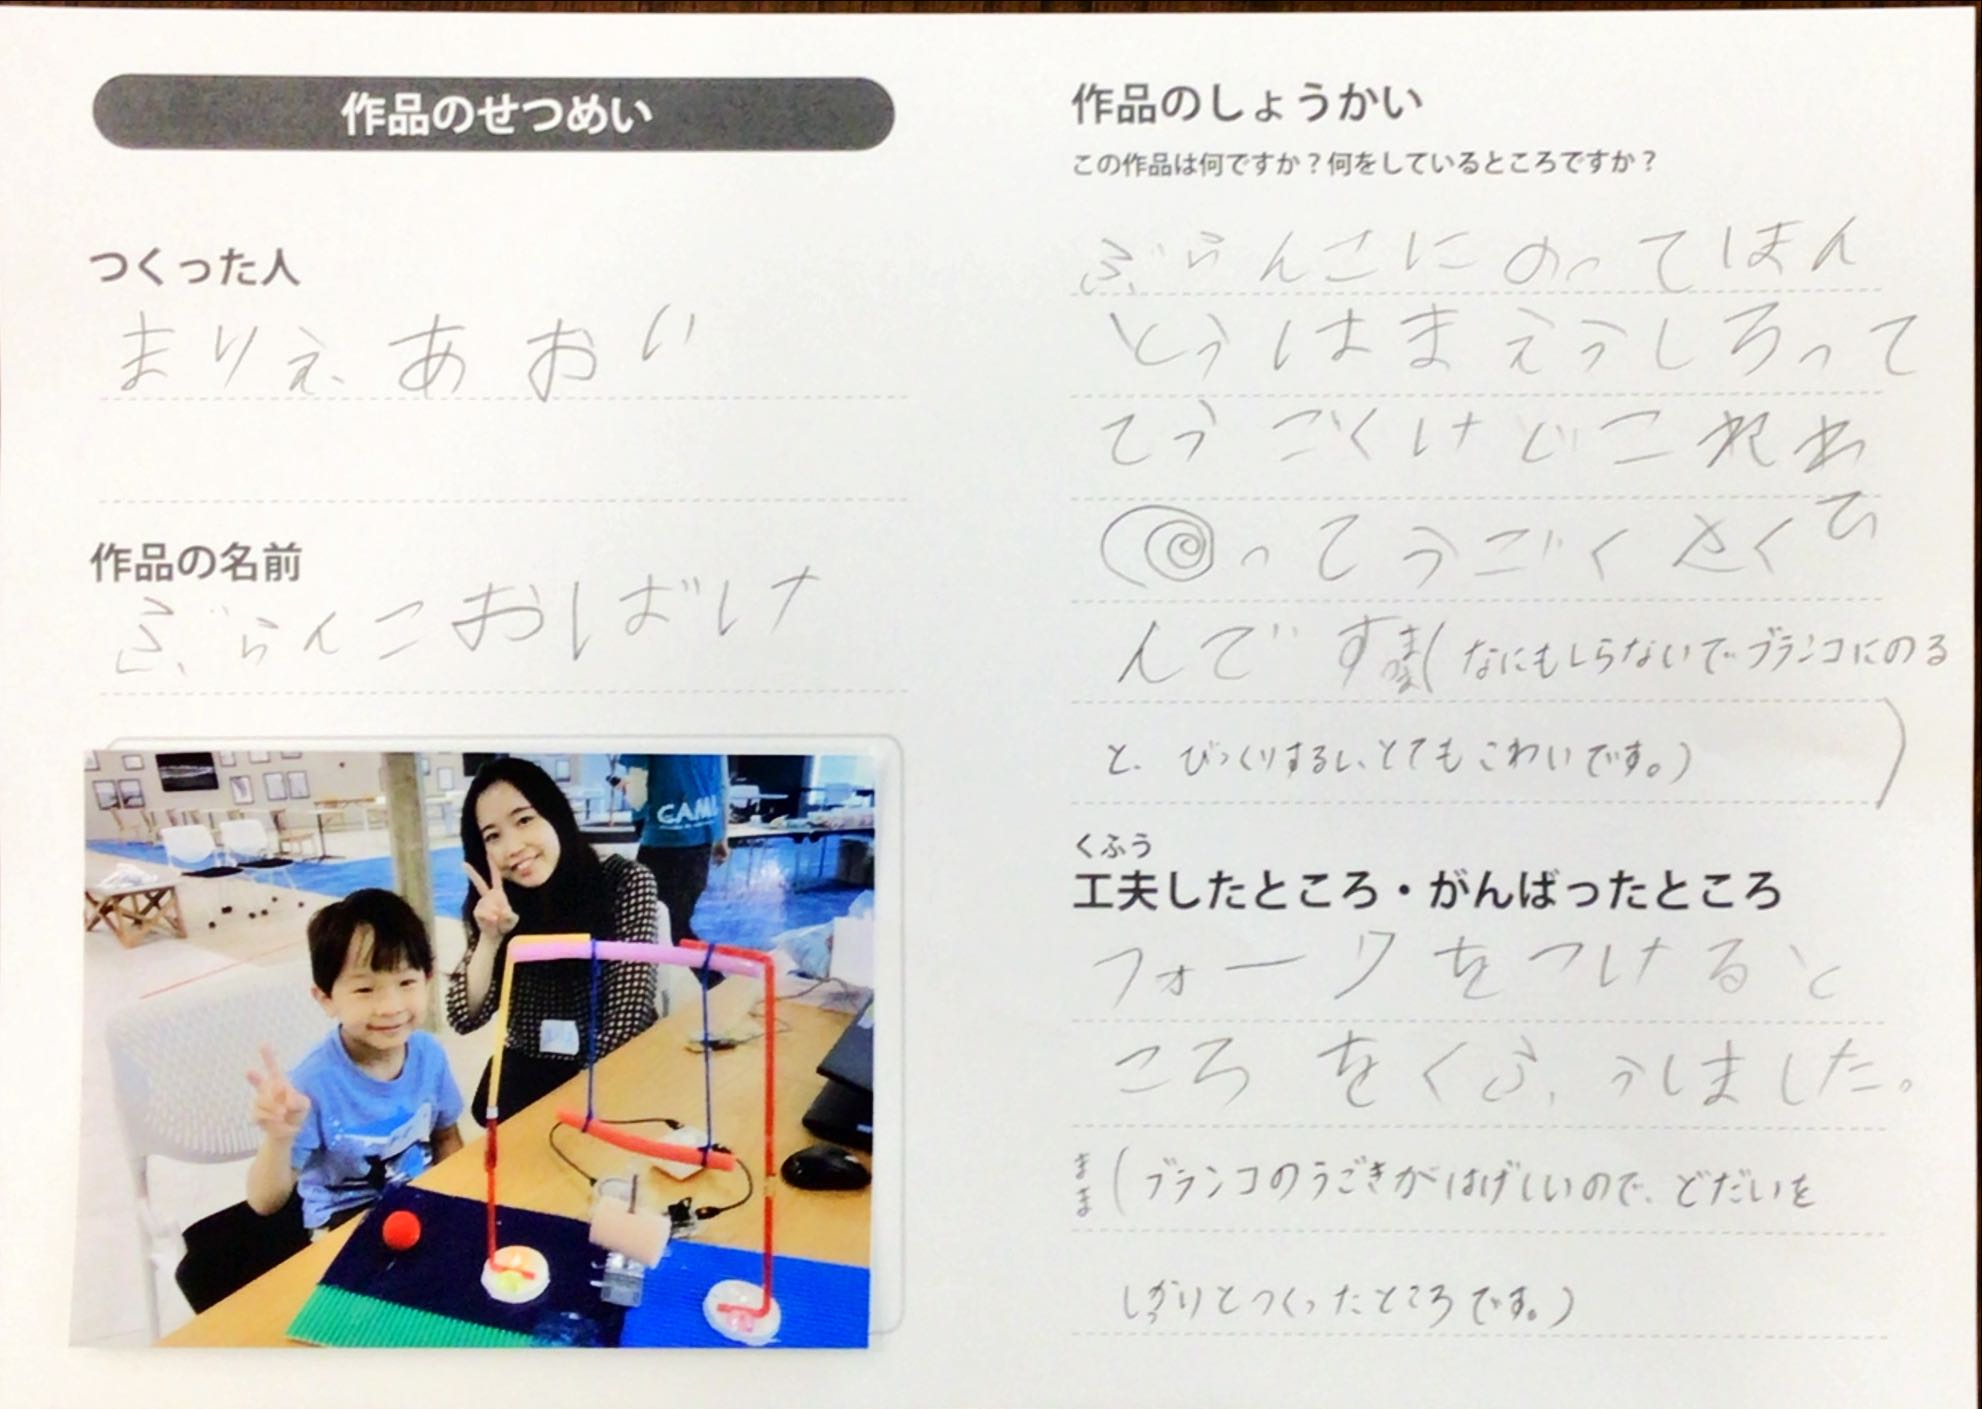 作品のせつめい
つくった人
まりえ、あおい
作品の名前
ぶらんこおばけ
CAM
作品のしょうかい
この作品は何ですか?何をしているところですか?
ぶらんこにのってほん
とうはまえうしろって
てうごくけどこれわ
ってうごくとくて
んです まま(なにもしらないでブランコにのる
と、びっくりするし、とてもこわいです。)
くふう
工夫したところ・がんばったところ
フォークをつけると
ころをくふうしました。
まま(ブランコのうごきがはげしいので、どだいを
しっかりとつくったところです。)